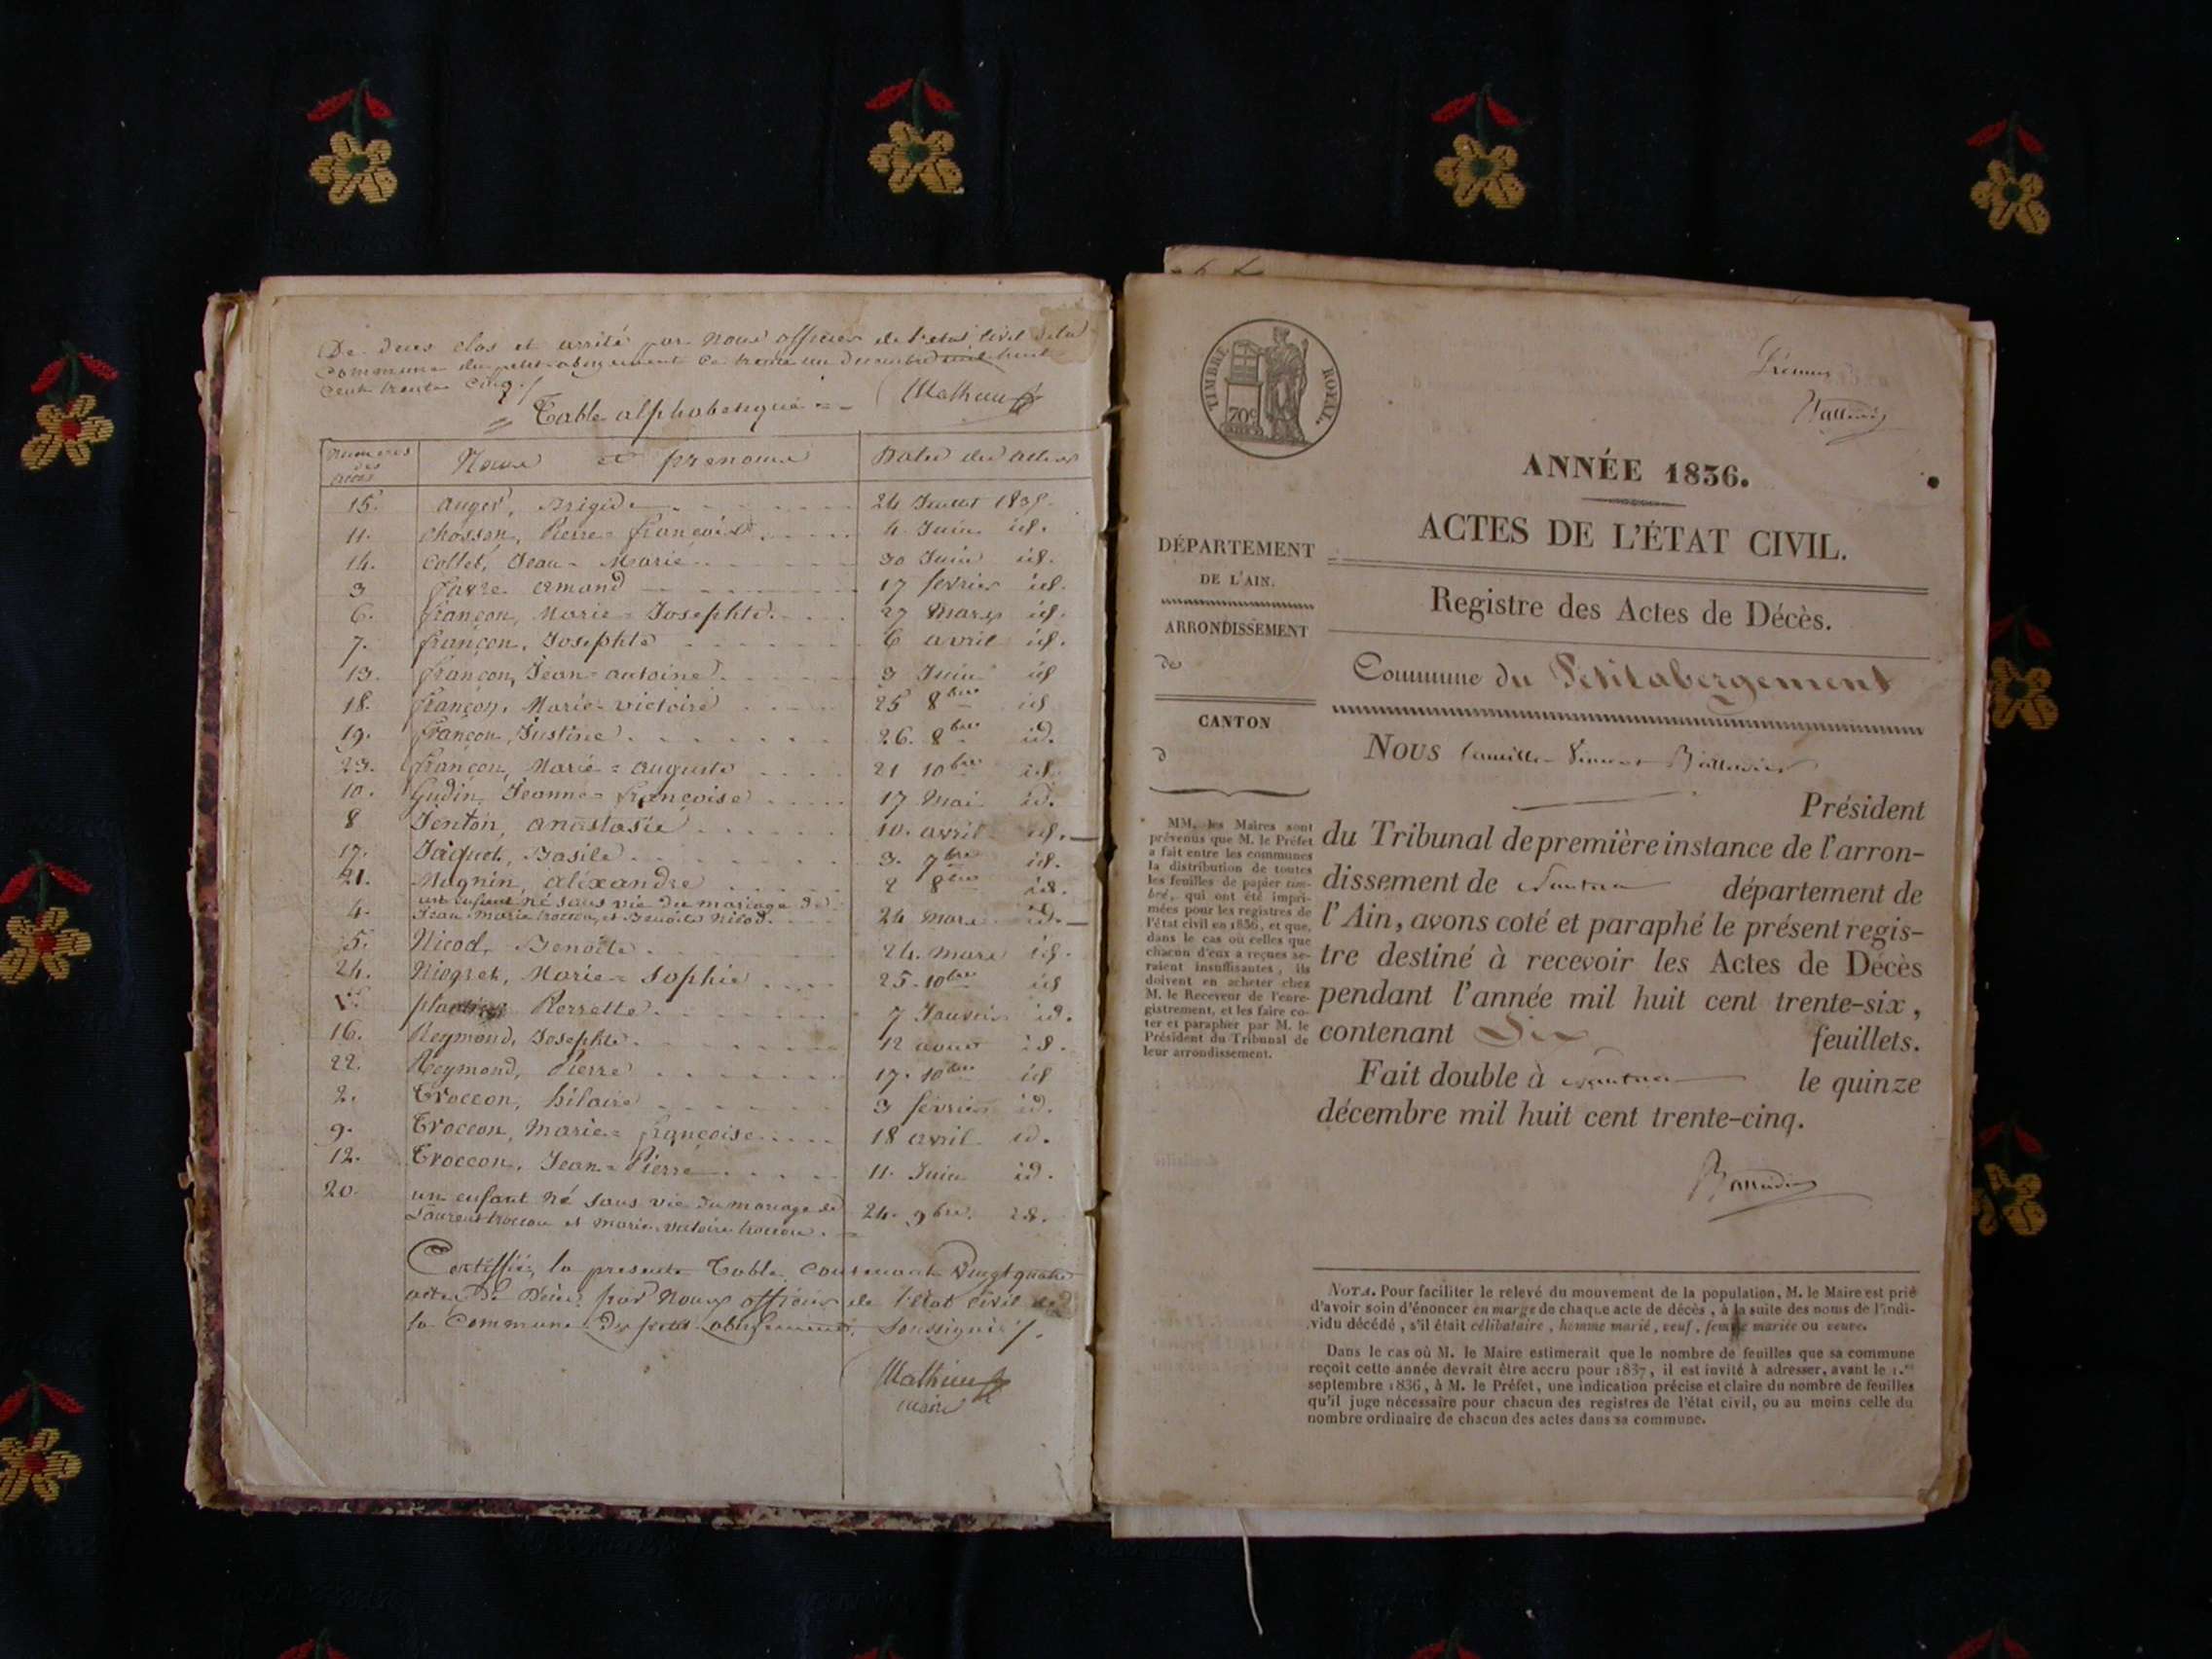 De deces clos et arrêté par Nous officier de l'état civil de la
Commune du petit abergement Ce trente un decembre mil huit
Cent trente Cinq ./
Mathieu
= Table alphabetique =
Numeros des actes Noms et prenoms Dates des actes
15. Auger, Brigide 24 Juillet 1835.
11. Chosson, Pierre = françois 4 Juin id.
14. Collet, Jean = Marie 30 Juin id.
3 favre armand 17 fevrier id.
6. françon, Marie = Josephte 27 Mars id.
7. françon, Josephte 6 avril id.
13. françon, Jean = antoine 3 Juin id
18. françon, Marie = victoire 25 8bre id
19. françon, Justine 26. 8bre id.
23. françon, Marie = auguste 21 10bre id.
10. Gudin, Jeanne = françoise 17 Mai id.
8 Jenton, anastasie 10. avril id.
17. Jaquet, Basile 3. 7bre id.
21. Magnin, alexandre 2 8bre id.
4. un enfant né sans vie du mariage de
Jean Marie trocon, et Benoite Nicod. 24 Mars id.
5. Nicod, Benoite 24. Mars id.
24. Niogret, Marie = Sophie 25. 10bre id
1. Pierrette 7 Janvier id.
16. Reymond, Josephte 12 aout id.
22. Reymond, Pierre 17. 10bre id
2. Troccon, hilaire 3 fevrier id.
9. Troccon, Marie = françoise 18 avril id.
12. Troccon, Jean = Pierre 11. Juin id.
20. un enfant né sans vie du mariage de
Laurent troccon et Marie victoire troccon. 24. 9bre. id.
Certiffiée la presente Table Contenant Vingt quatre
actes De Décès par Nous officier de l'état civil de
la Commune Du petit abergement, Soussigné ./.
Mathieu
maire
TIMBRE ROYAL.
70c
ANNÉE 1836.
ACTES DE L'ÉTAT CIVIL.
Registre des Actes de Décès.
Commune du Petitabergement
DÉPARTEMENT
DE L'AIN.
ARRONDISSEMENT
de
CANTON
d
MM. les Maires sont
prévenus que M. le Préfet
a fait entre les communes
la distribution de toutes
les feuilles de papier tim-
bré, qui ont été impri-
mées pour les registres de
l'état civil en 1836, et que,
dans le cas où celles que
chacun d'eux a reçues se-
raient insuffisantes, ils
doivent en acheter chez
M. le Receveur de l'enre-
gistrement, et les faire co-
ter et parapher par M. le
Président du Tribunal de
leur arrondissement.
Nous Camille Vincent
Président
du Tribunal de première instance de l'arron-
dissement de Nantua département de
l'Ain, avons coté et paraphé le présent regis-
tre destiné à recevoir les Actes de Décès
pendant l'année mil huit cent trente-six,
contenant Dix feuillets.
Fait double à Nantua le quinze
décembre mil huit cent trente-cinq.
NOTA. Pour faciliter le relevé du mouvement de la population, M. le Maire est prié
d'avoir soin d'énoncer en marge de chaque acte de décès, à la suite des noms de l'indi-
vidu décédé, s'il était célibataire, homme marié, veuf, femme mariée ou veuve.
Dans le cas où M. le Maire estimerait que le nombre de feuilles que sa commune
reçoit cette année devrait être accru pour 1837, il est invité à adresser, avant le 1.er
septembre 1836, à M. le Préfet, une indication précise et claire du nombre de feuilles
qu'il juge nécessaire pour chacun des registres de l'état civil, ou au moins celle du
nombre ordinaire de chacun des actes dans sa commune.